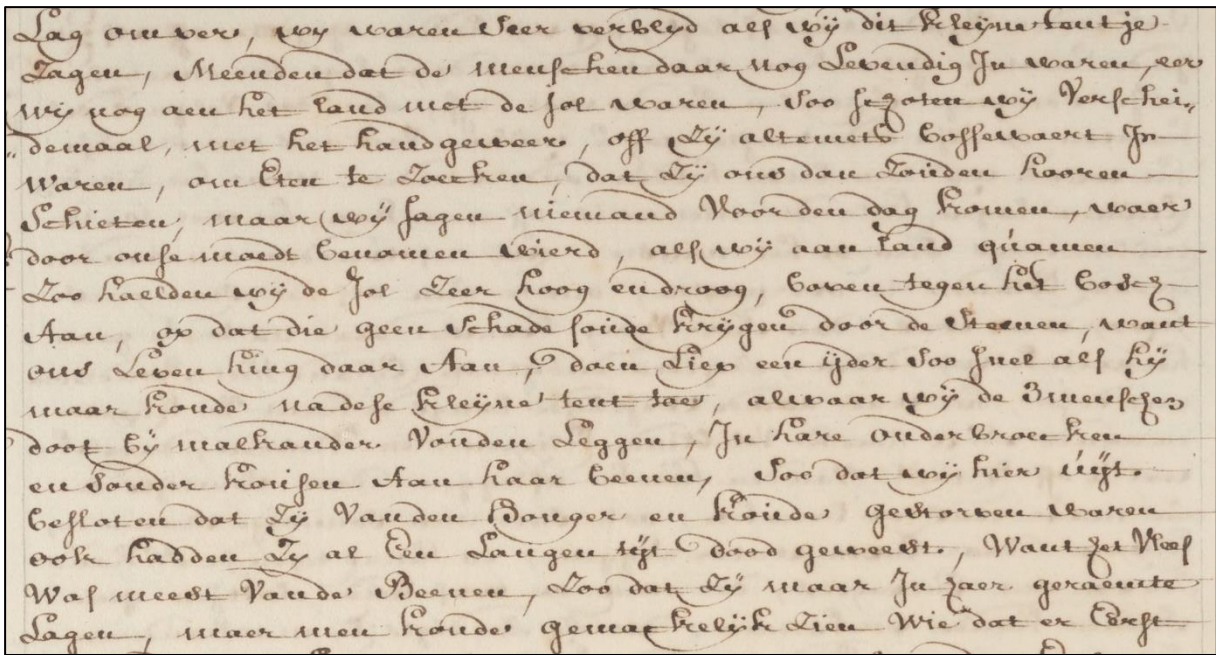 Lag om ver, wy waren Seer verblyd als wÿ dit kleyne tentje
Zagen, Meenden dat de menschen daar nog Levendig In waren, eer
wy nog aen het land met de Jol waren, Soo schoten wÿ Verschei„
„demaal, met het handgeweer, off Zÿ altemets bossewaert In
waren, om Eten te Zoecken, dat Zÿ ons dan Zouden hooren
Schieten, maar wÿ sagen niemand Voor den dag komen, waer
door onse moedt benomen wierd, als wÿ aan land quamen
Zoo haelden wÿ de Jol Zeer hoog en droog, boven tegen het bosch
Aan, op dat die geen Schade soude krÿgen door de Steenen, want
ons Leven hing daar Aan, doen Liep een ÿder Soo snel als hÿ
maar konde na dese kleÿne tent toe, alwaar wÿ de 3 menschen
doot bÿ malkander Vonden Leggen, In hare onderbroecken
en Sonder kousen Aan haar beenen, Soo dat wÿ hier uÿt
besloten dat Zÿ Van den Honger en koude gestorven waren
ook hadden Zÿ al Een Langen tÿt dood geweest, Want het Vlees
Was meest Van de Beenen, Zoo dat Zÿ maar In haer geraemte
Lagen, maer men konde gemackelÿk Zien Wie dat er Eerst